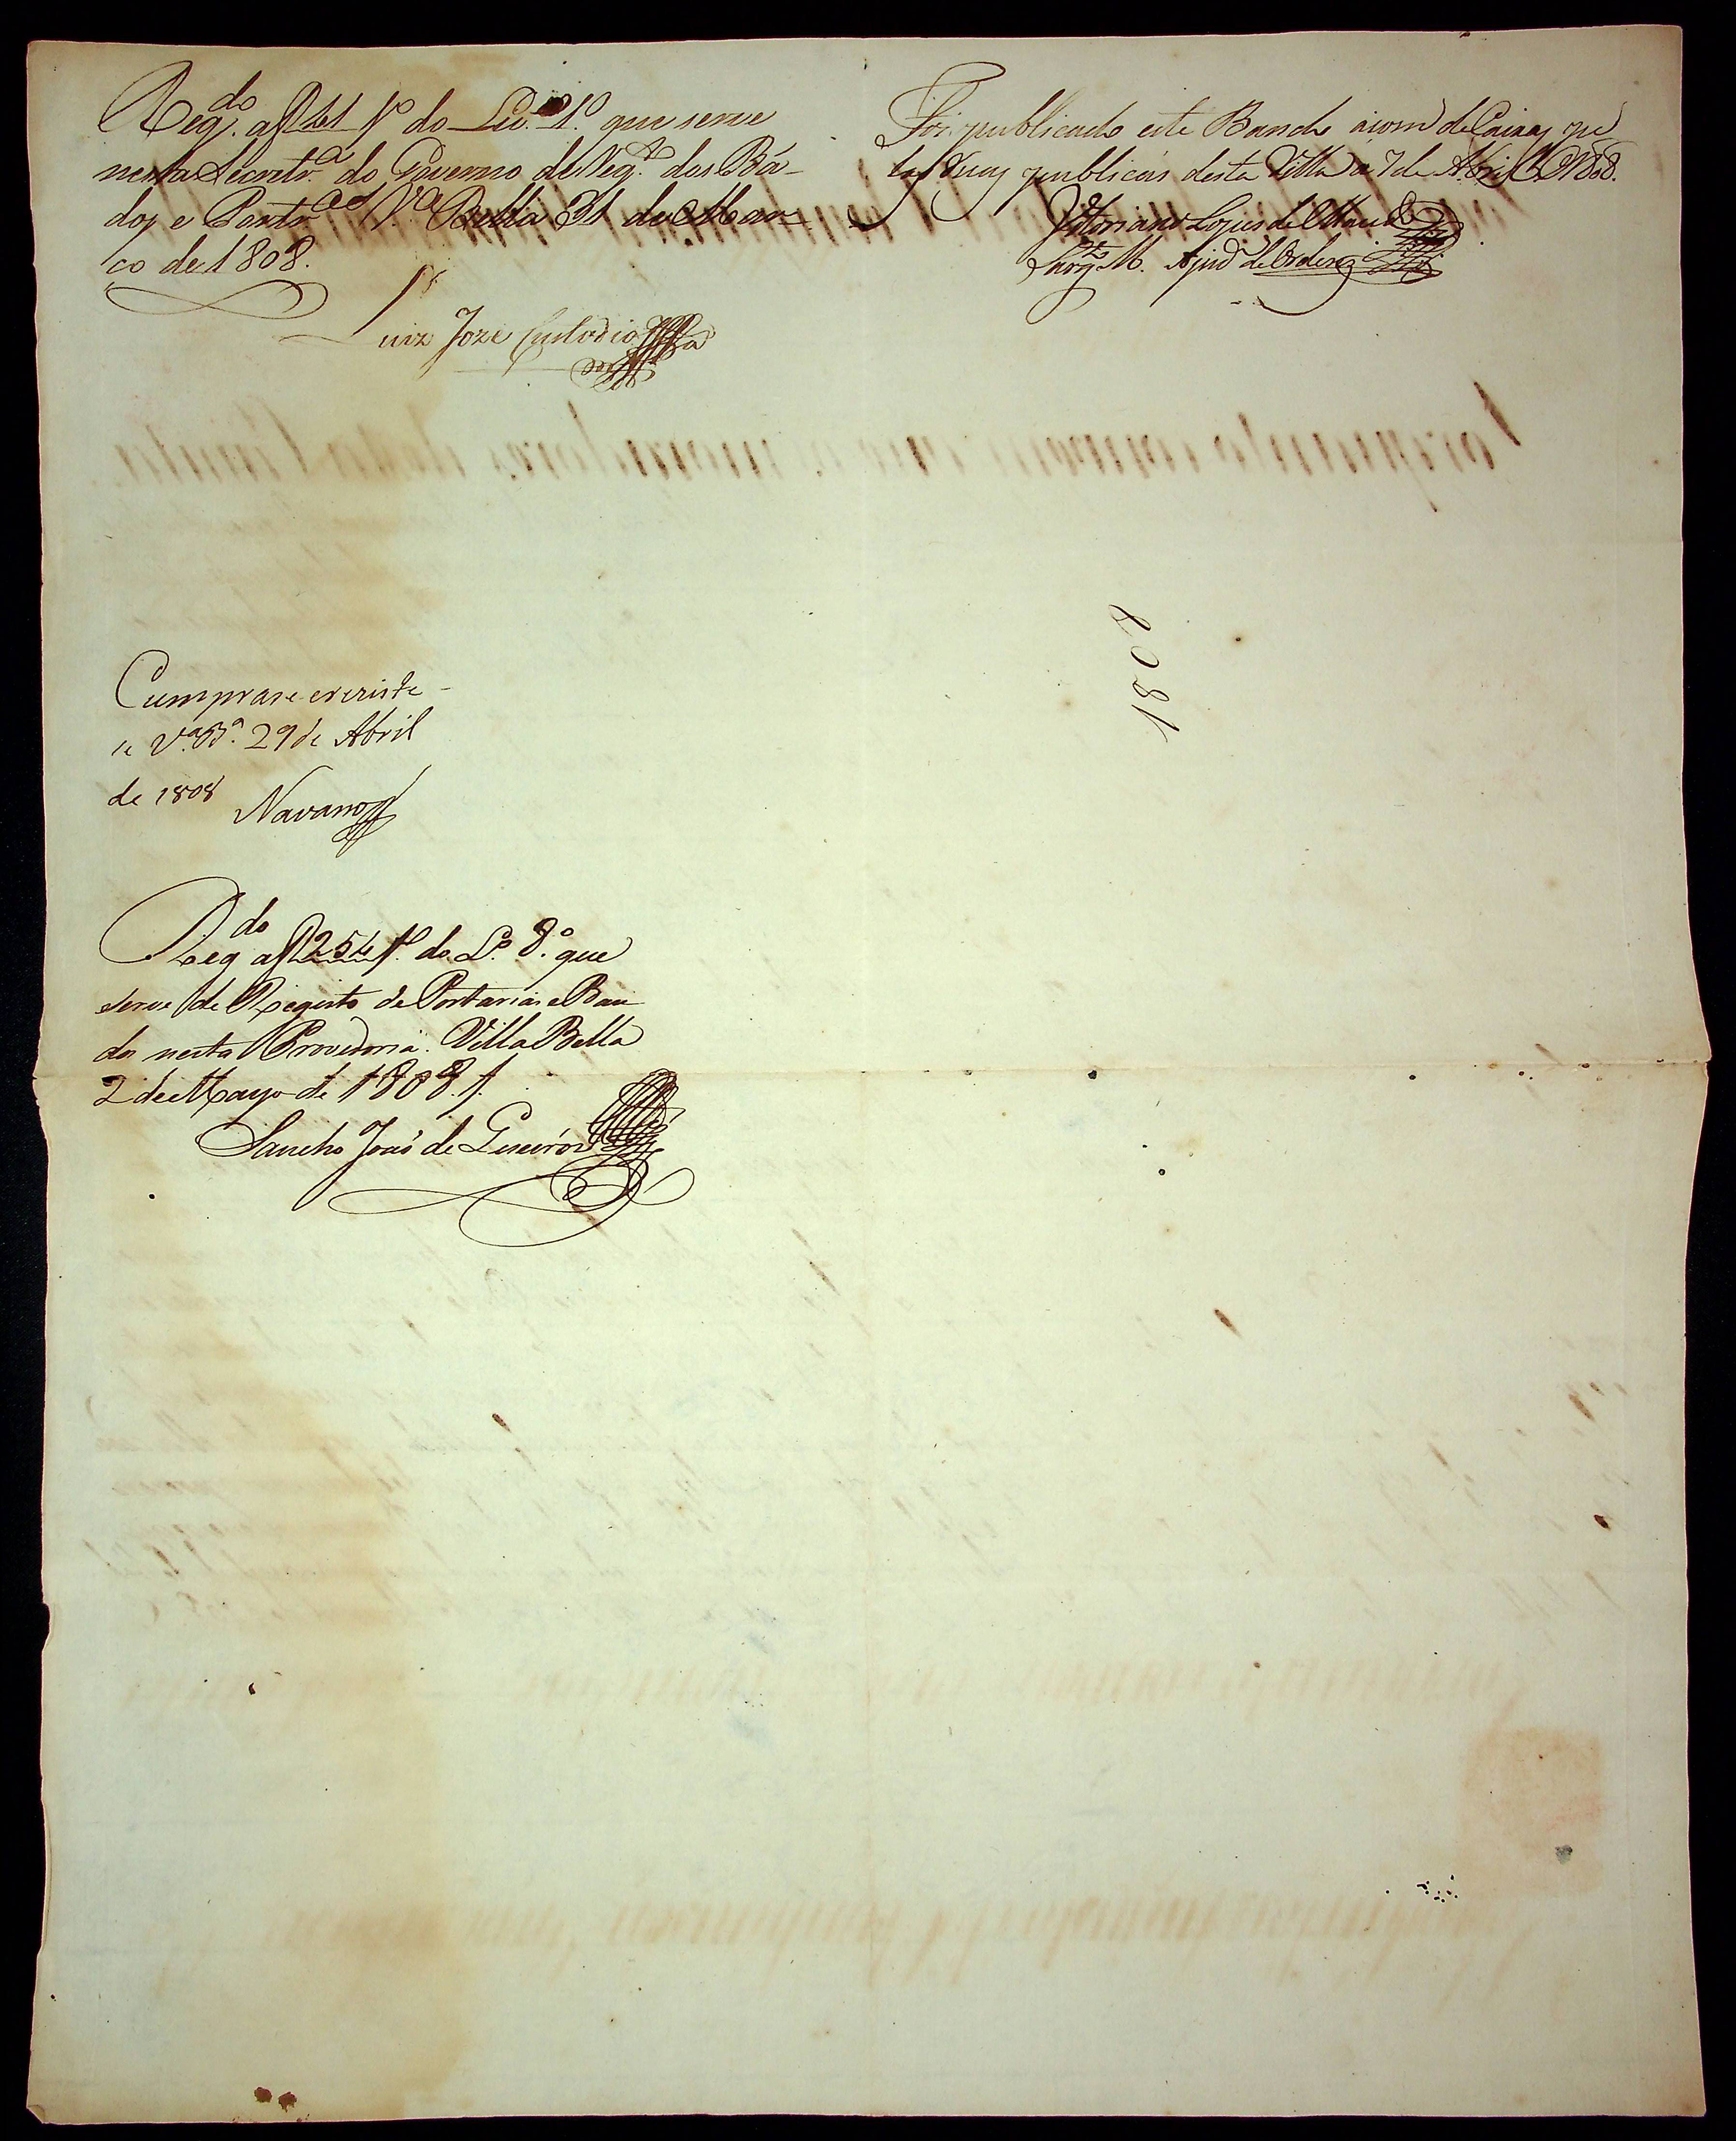 Reg.do a f 141 v.o do Liv.o 1.o que serve
nesta Secretr.a do Governo de Reg.to dos Ba-
dos e Portr.as V.a Bella 31 de Mar-
ço de 1808.
Luiz Joze Custodio
Foi publicado este Bando a som de Caixas pe
las Ruas publicas desta Villa a 7 de Abril de 1808.
Vitoriano Lopes de Macedo
Sarg.to M. Ajud.e de Ordens
1808
Cumprase e reziste-
se V.a B.a 29 de Abril
de 1808 Navarro
Reg.do a f 254 v.o do L.o 8.o que
serve de Registo de Portarias e Ban
dos nesta Provedoria. Villa Bella
2 de Mayo de 1808.
Sancho João de Queirós